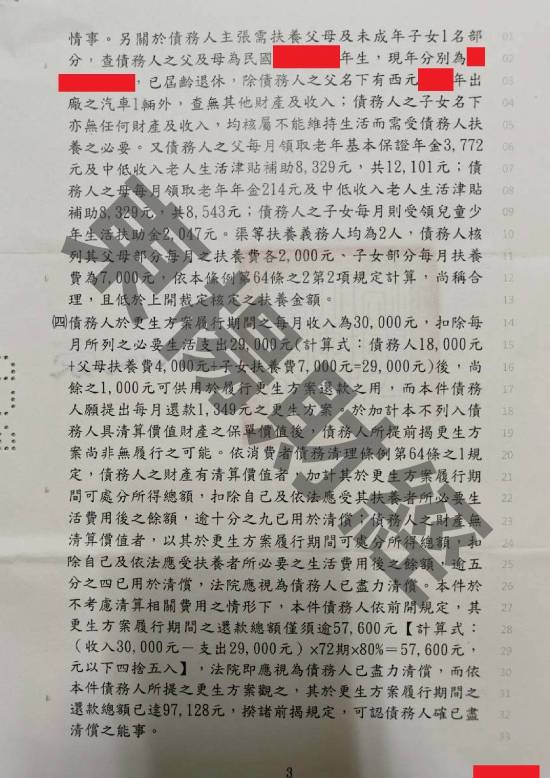 情事。另關於債務人主張需扶養父母及未成年子女1名部 01
分，查債務人之父及母為民國 年生，現年分別為 02
，已屆齡退休，除債務人之父名下有西元 年出 03
廠之汽車1輛外，查無其他財產及收入；債務人之子女名下 04
亦無任何財產及收入，均核屬不能維持生活而需受債務人扶 05
養之必要。又債務人之父每月領取老年基本保證年金3,772 06
元及中低收入老人生活津貼補助8,329元，共12,101元；債 07
務人之母每月領取老年年金214元及中低收入老人生活津貼 08
補助8,329元，共8,543元；債務人之子女每月則受領兒童少 09
年生活扶助金2,047元。渠等扶養義務人均為2人，債務人核 10
列其父母部分每月之扶養費各2,000元、子女部分每月扶養 11
費為7,000元，依本條例第64條之2第2項規定計算，尚稱合 12
理，且低於上開裁定核定之扶養金額。 13
㈣債務人於更生方案履行期間之每月收入為30,000元，扣除每 14
月所列之必要生活支出29,000元(計算式：債務人18,000元 15
+父母扶養費4,000元+子女扶養費7,000元=29,000元)後，尚 16
餘之1,000元可供用於履行更生方案還款之用，而本件債務 17
人願提出每月還款1,349元之更生方案，於加計本不列入債 18
務人具清算價值財產之保單價值後，債務人所提前揭更生方 19
案尚非無履行之可能。依消費者債務清理條例第64條之1規 20
定，債務人之財產有清算價值者，加計其於更生方案履行期 21
間可處分所得總額，扣除自己及依法應受其扶養者所必要生 22
活費用後之餘額，逾十分之九已用於清償；債務人之財產無 23
清算價值者，以其於更生方案履行期間可處分所得總額，扣 24
除自己及依法應受扶養者所必要之生活費用後之餘額，逾五 25
分之四已用於清償，法院應視為債務人已盡力清償。本件於 26
不考慮清算相關費用之情形下，本件債務人依前開規定，其 27
更生方案履行期間之還款總額僅須逾57,600元【計算式： 28
（收入30,000元－支出29,000元）×72期×80%＝57,600元， 29
元以下四捨五入】，法院即應視為債務人已盡力清償，而依 30
本件債務人所提之更生方案觀之，其於更生方案履行期間之 31
還款總額已達97,128元，揆諸前揭規定，可認債務人確已盡 32
清償之能事。 33
3